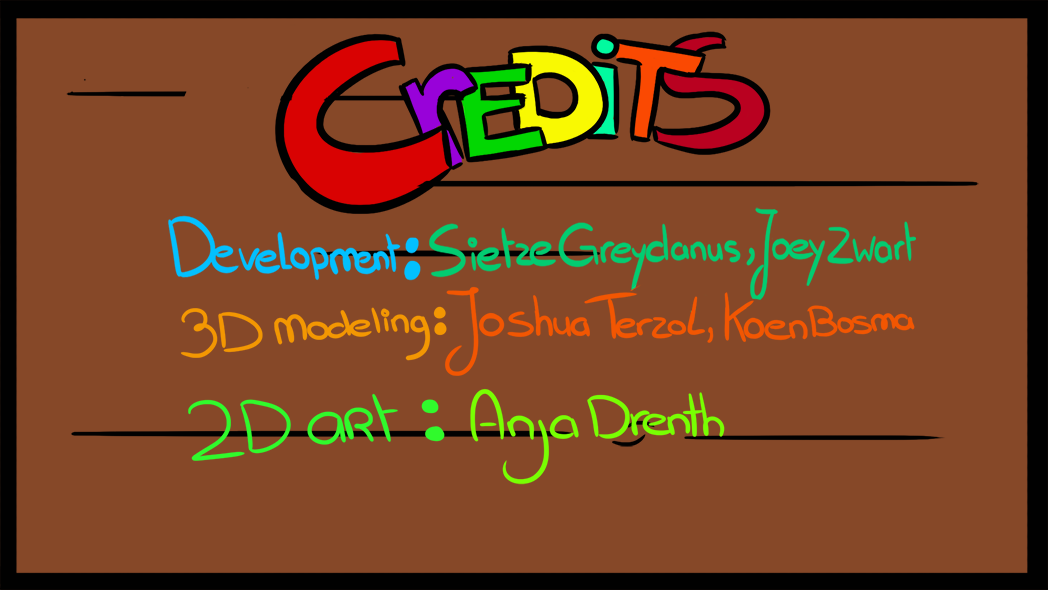 CrEDiTS
Development: Sietze Greydanus, Joey Zwart
3D modeling: Joshua Terzol, Koen Bosma
2D art : Anja Drenth